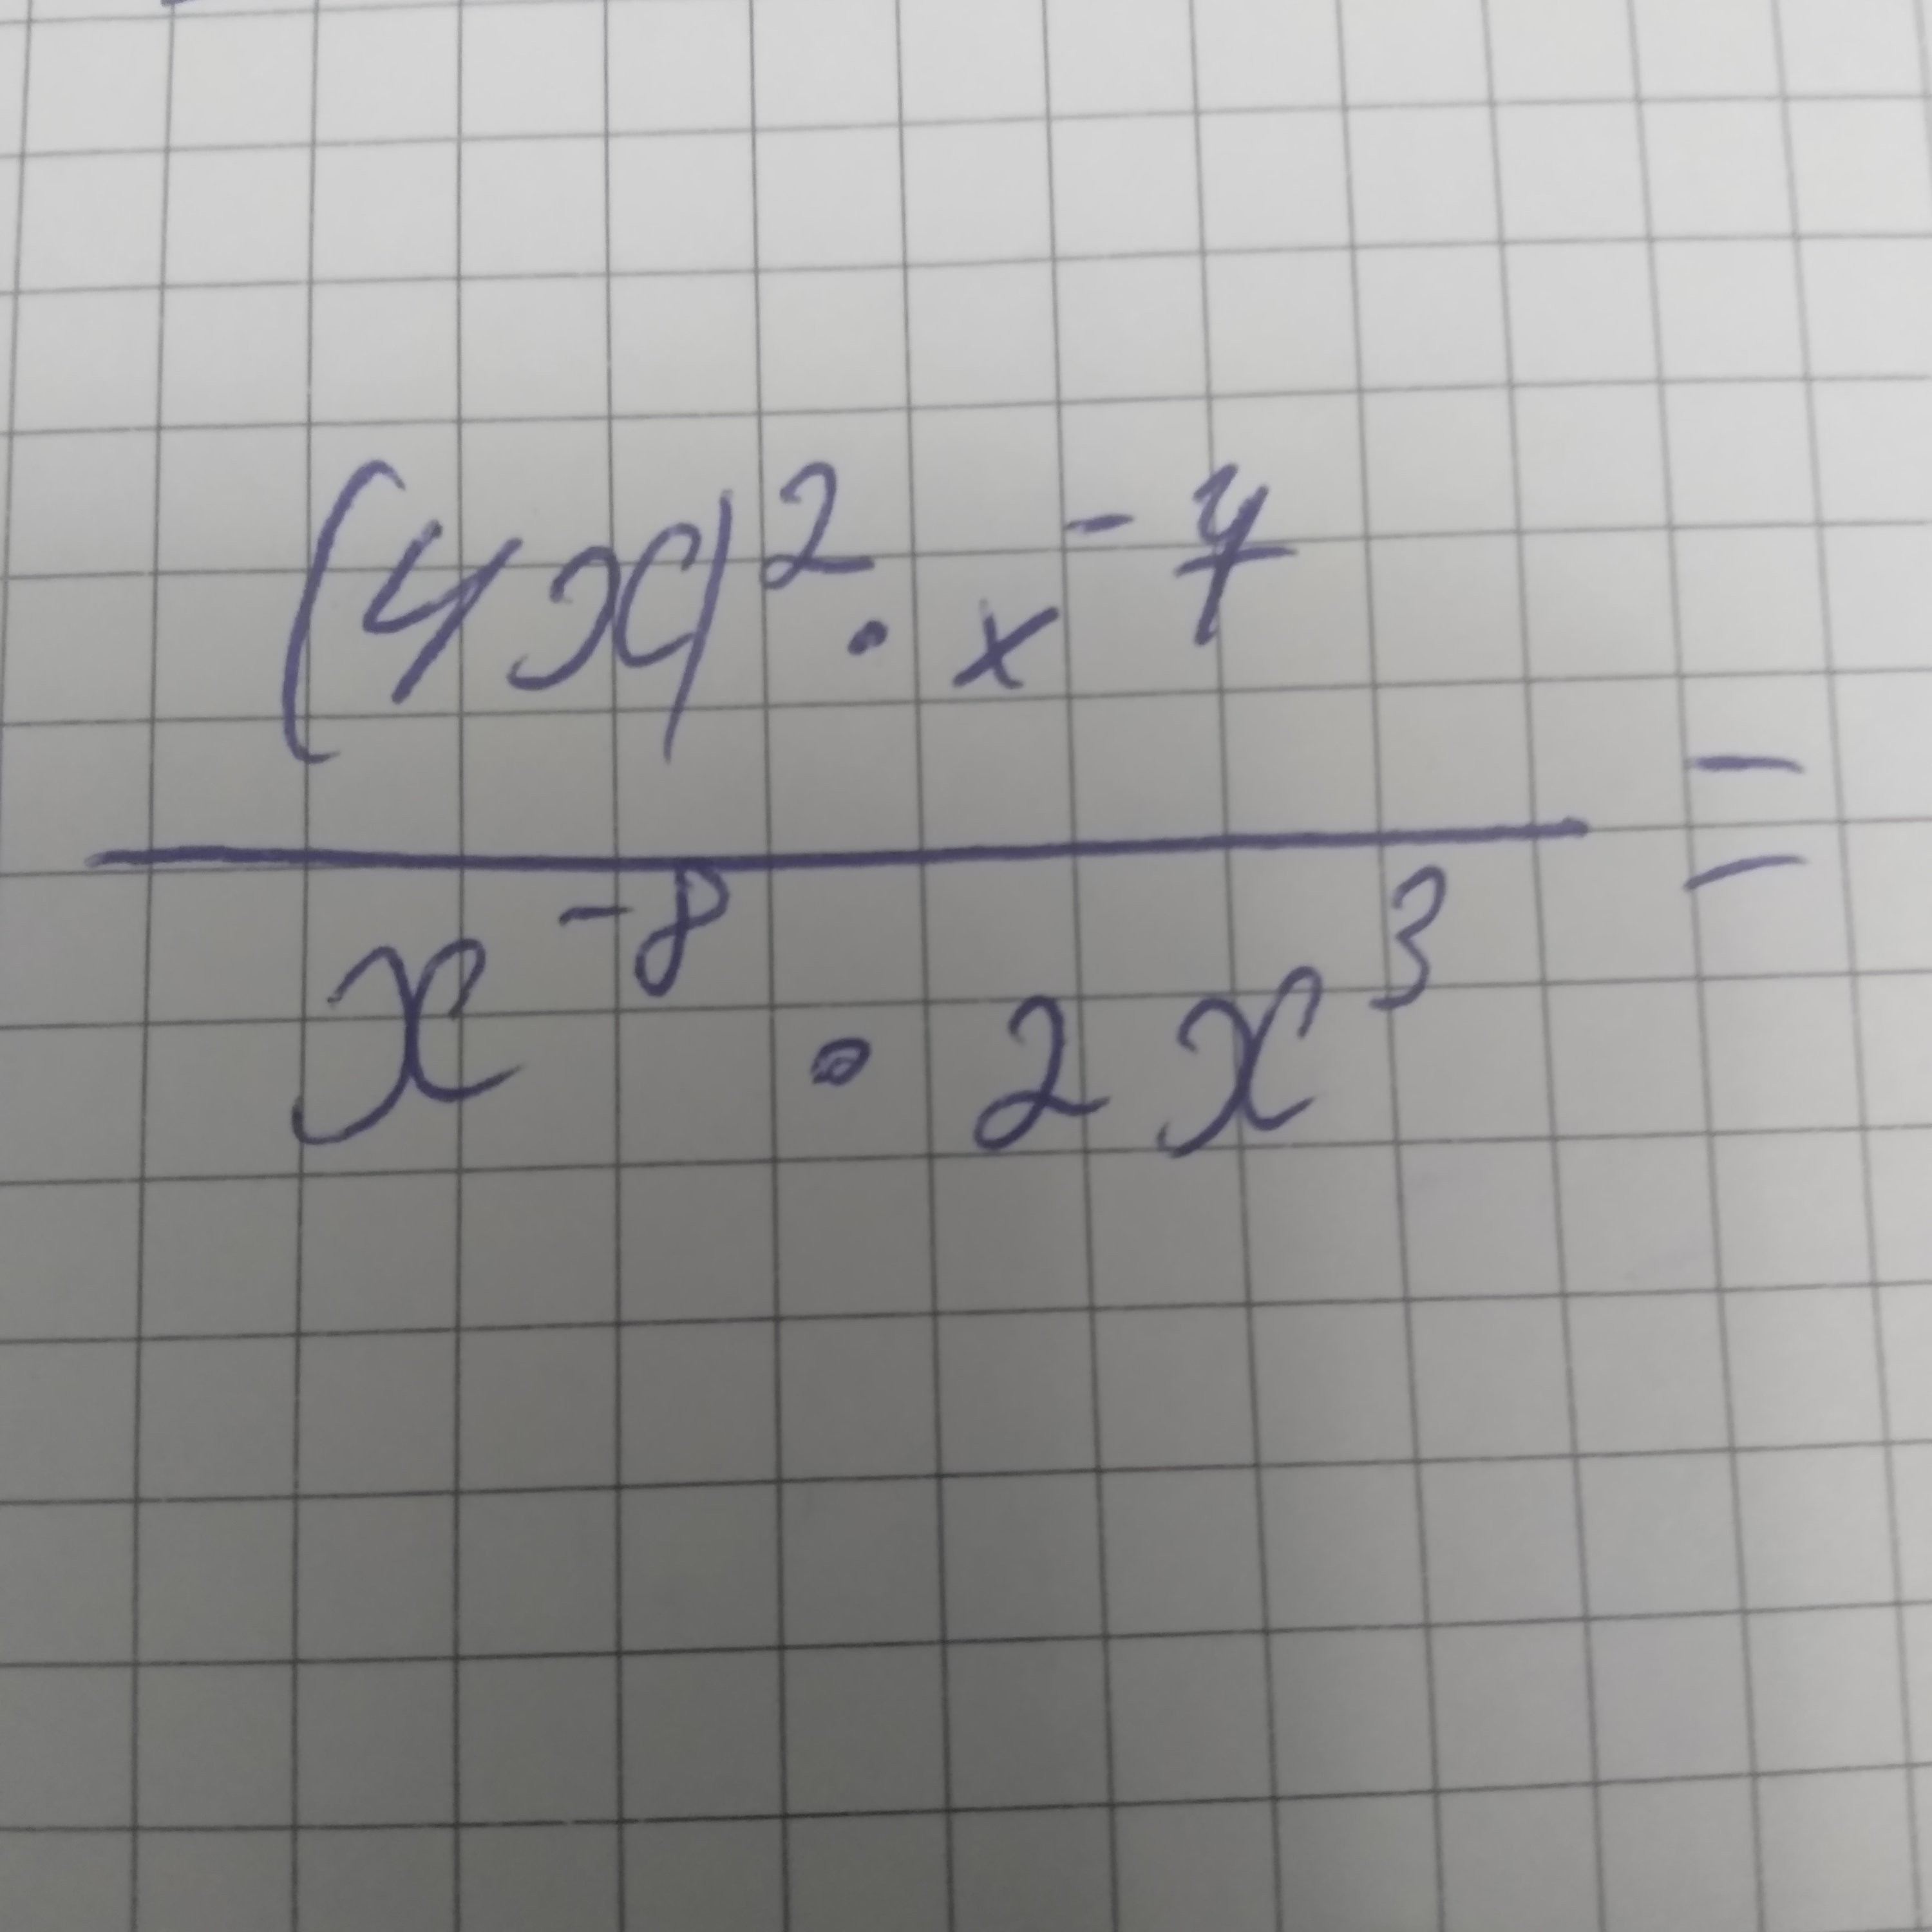 (4x)² · x⁻⁷
x⁻⁸ · 2x³ =